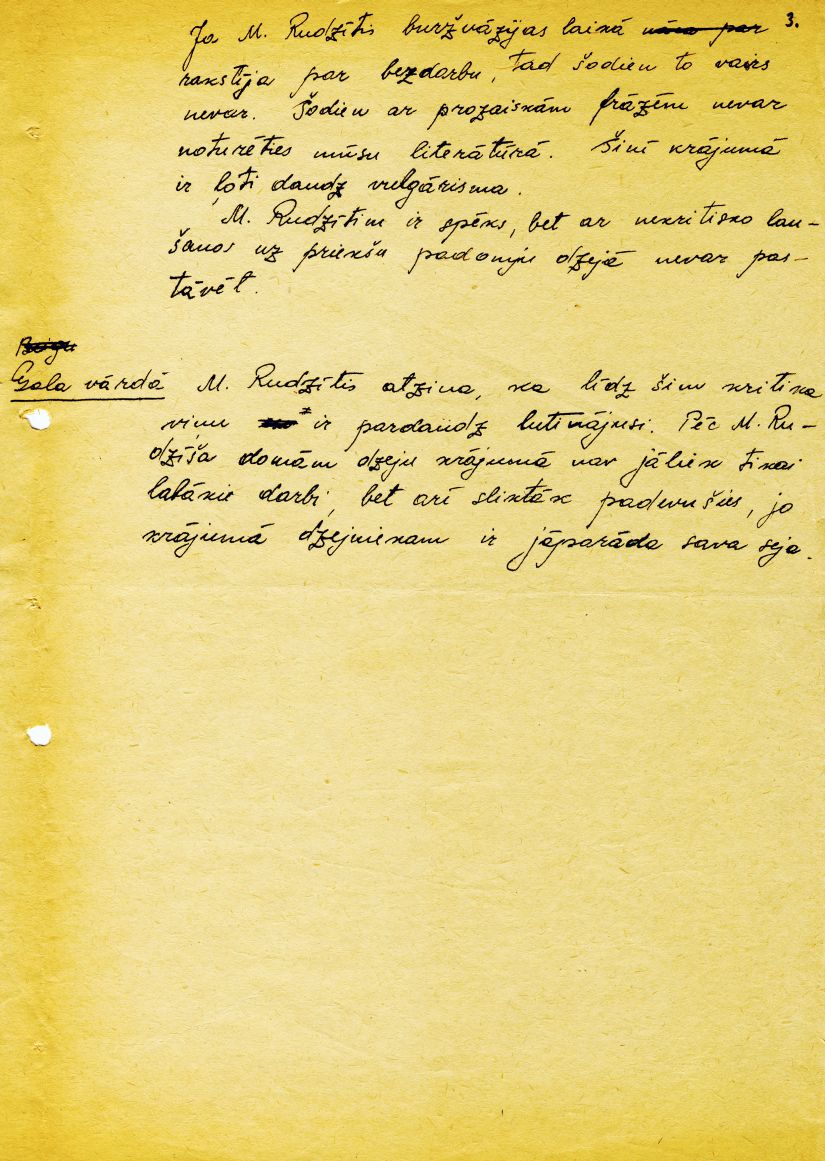 3.
Ja M. Rudzītis buržuāzijas laikā
rakstīja par bezdarbu, tad šodien to vairs
nevar. Šodien ar prozaiskām frāzēm nevar
noturēties mūsu literātūrā. Šinī krājumā
ir ļoti daudz vulgārisma.
M. Rudzītim ir spēks, bet ar nekritisko lau-
šanos uz priekšu padomju dzejā nevar pas-
tāvēt.
Beigu
Gala vārdā M. Rudzītis atzina, ka līdz šim kritika
viņu ir pardaudz lutinājusi. Pēc M. Ru-
dzīša domām dzeju krājumā nav jāliek tikai
labākie darbi, bet arī sliktāk padevušies, jo
krājumā dzejniekam ir jāparāda sava seja.